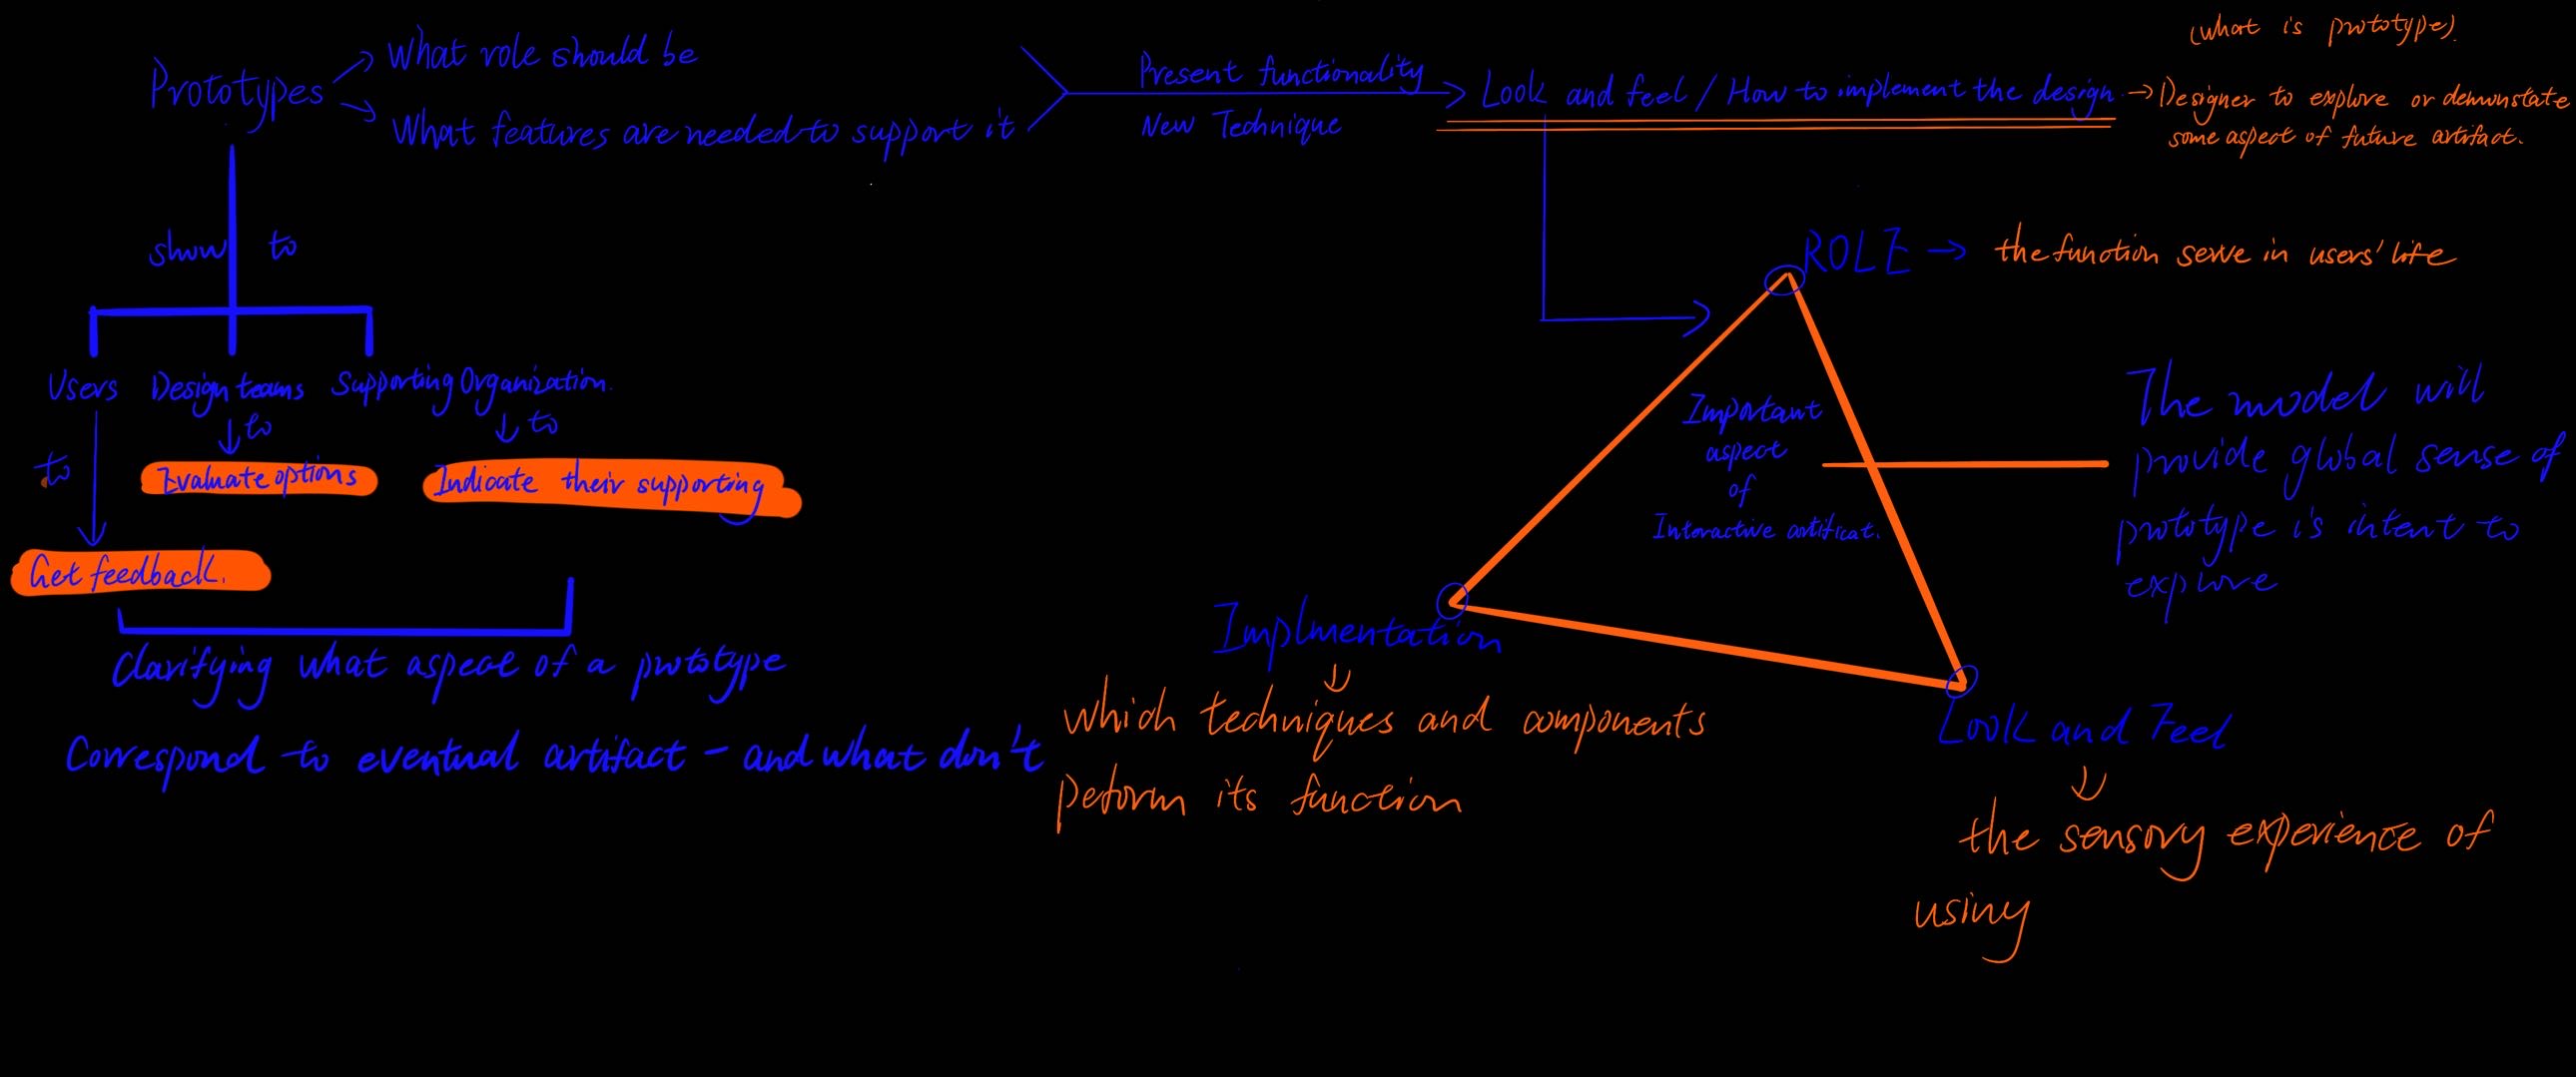 Prototypes
What role should be
What features are needed to support it
Present functionality
New Technique
Look and feel / How to implement the design
(what is prototype).
Designer to explore or demonstate
some aspect of future artifact.
show to
Users
Design teams
Supporting Organization.
to
to
to
Evaluate options
Indicate their supporting
Get feedback.
Clarifying what aspect of a prototype
Correspond to eventual artifact - and what don't
ROLE
the function serve in users' life
Important
aspect
of
Interactive artificat.
The model will
provide global sense of
prototype is intent to
explore
Implmentation
which techniques and components
peform its function
Look and Feel
the sensory experience of
using